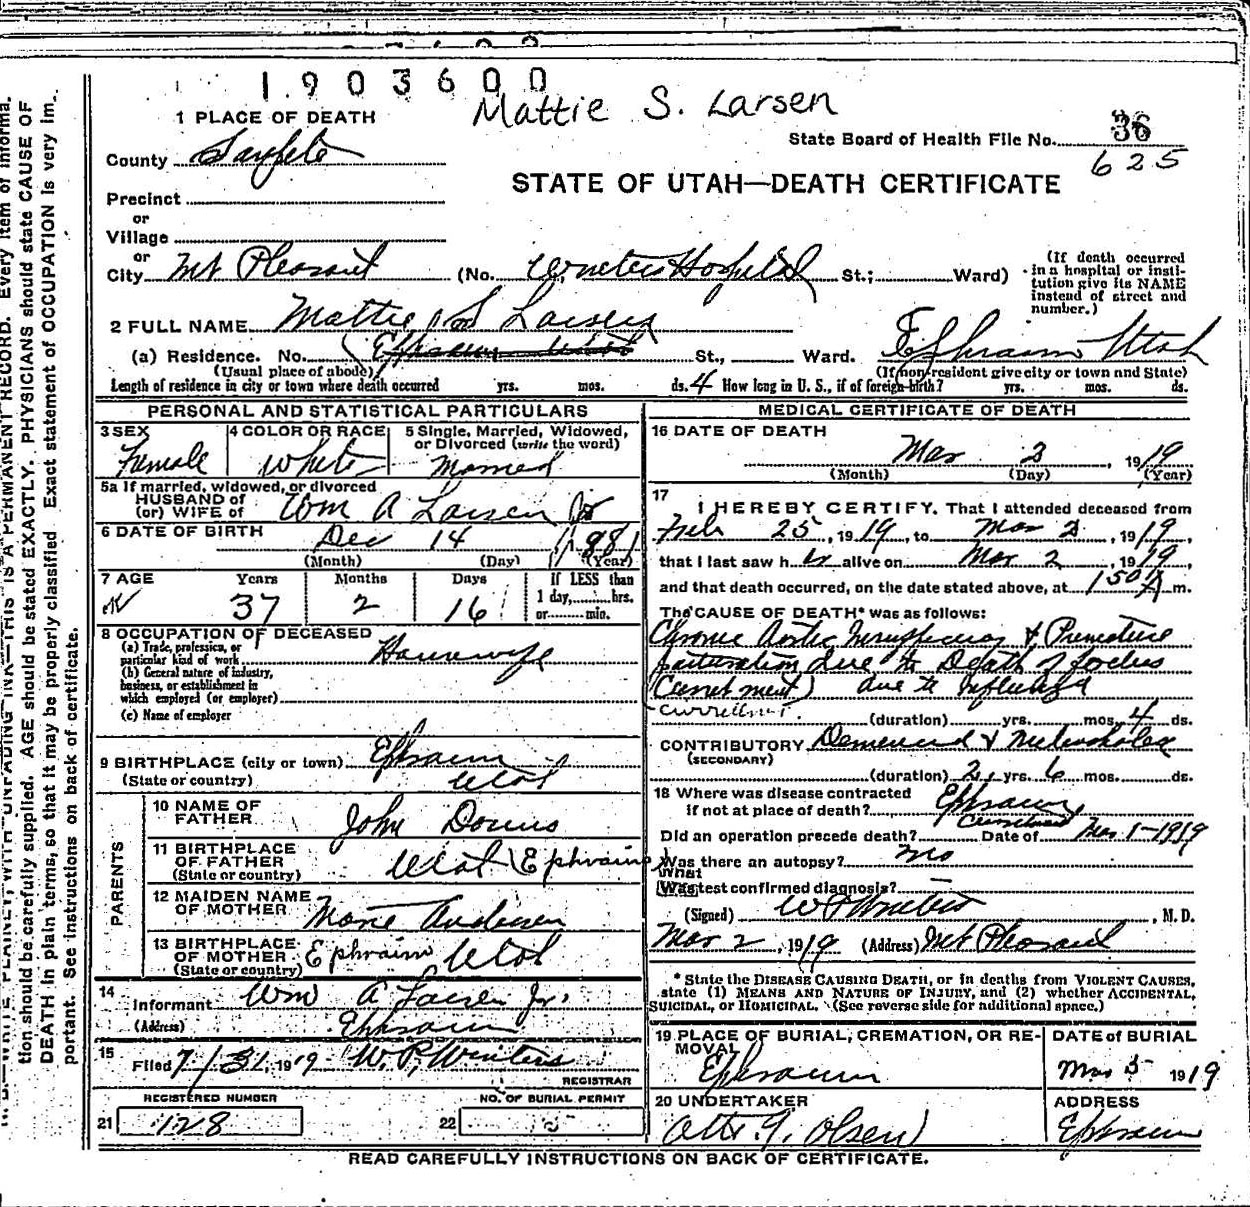 1903600
Mattie S. Larsen
1 PLACE OF DEATH
State Board of Health File No. 36
625
County Sanpete
STATE OF UTAH—DEATH CERTIFICATE
Precinct
or
Village
or
City Mt Pleasant (No. Winters Hospital St.; Ward)
(If death occurred in a hospital or institution give its NAME instead of street and number.)
2 FULL NAME Mattie S Larsen
(a) Residence. No. Ephraim Utah St., Ward. Ephraim Utah
(Usual place of abode) (If non-resident give city or town and State)
Length of residence in city or town where death occurred yrs. mos. ds. 4 How long in U. S., if of foreign birth? yrs. mos. ds.
PERSONAL AND STATISTICAL PARTICULARS
3 SEX Female
4 COLOR OR RACE White
5 Single, Married, Widowed, or Divorced (write the word) Married
5a If married, widowed, or divorced
HUSBAND of
(or) WIFE of Wm A Larsen Jr
6 DATE OF BIRTH Dec 14 1881
(Month) (Day) (Year)
7 AGE Years Months Days If LESS than
37 2 16 1 day, hrs.
or min.
8 OCCUPATION OF DECEASED
(a) Trade, profession, or
particular kind of work Housewife
(b) General nature of industry,
business, or establishment in
which employed (or employer)
(c) Name of employer
9 BIRTHPLACE (city or town) Ephraim
(State or country) Utah
PARENTS
10 NAME OF FATHER John Dorius
11 BIRTHPLACE OF FATHER (State or country) Utah (Ephraim)
12 MAIDEN NAME OF MOTHER Andersen
13 BIRTHPLACE OF MOTHER (State or country) Ephraim Utah
14 Informant Wm A Larsen Jr.
(Address) Ephraim
15 Filed 7/31 1919 W. P. Winters
REGISTRAR
REGISTERED NUMBER NO. OF BURIAL PERMIT
21 128 22
MEDICAL CERTIFICATE OF DEATH
16 DATE OF DEATH
Mar 2, 1919
(Month) (Day) (Year)
17 I HEREBY CERTIFY, That I attended deceased from
Feb 25, 1919, to Mar 2, 1919,
that I last saw her alive on Mar 2, 1919,
and that death occurred, on the date stated above, at 150 A m.
The CAUSE OF DEATH* was as follows:
Chronic Aortic Insufficiency & Premature
parturation due to Death of foetus
(Curretment) due to Influenza
Curretment.
(duration) yrs. mos. 4 ds.
CONTRIBUTORY &
(SECONDARY)
(duration) 2 yrs. 6 mos. ds.
18 Where was disease contracted
if not at place of death? Ephraim
Did an operation precede death? Date of Mar 1-1919
Was there an autopsy? no
What
Was test confirmed diagnosis?
(Signed) W P Winters, M. D.
Mar 2, 1919 (Address) Mt Pleasant
* State the DISEASE CAUSING DEATH, or in deaths from VIOLENT CAUSES,
state (1) MEANS AND NATURE OF INJURY, and (2) whether ACCIDENTAL,
SUICIDAL, or HOMICIDAL. (See reverse side for additional space.)
19 PLACE OF BURIAL, CREMATION, OR REMOVAL Ephraim
DATE of BURIAL Mar 5 1919
20 UNDERTAKER Otto Olsen
ADDRESS Ephraim
READ CAREFULLY INSTRUCTIONS ON BACK OF CERTIFICATE.
PERMANENT RECORD. Every item of informa-
tion should be carefully supplied. AGE should be stated EXACTLY. PHYSICIANS should state CAUSE OF
DEATH in plain terms, so that it may be properly classified. Exact statement of OCCUPATION is very im-
portant. See instructions on back of certificate.